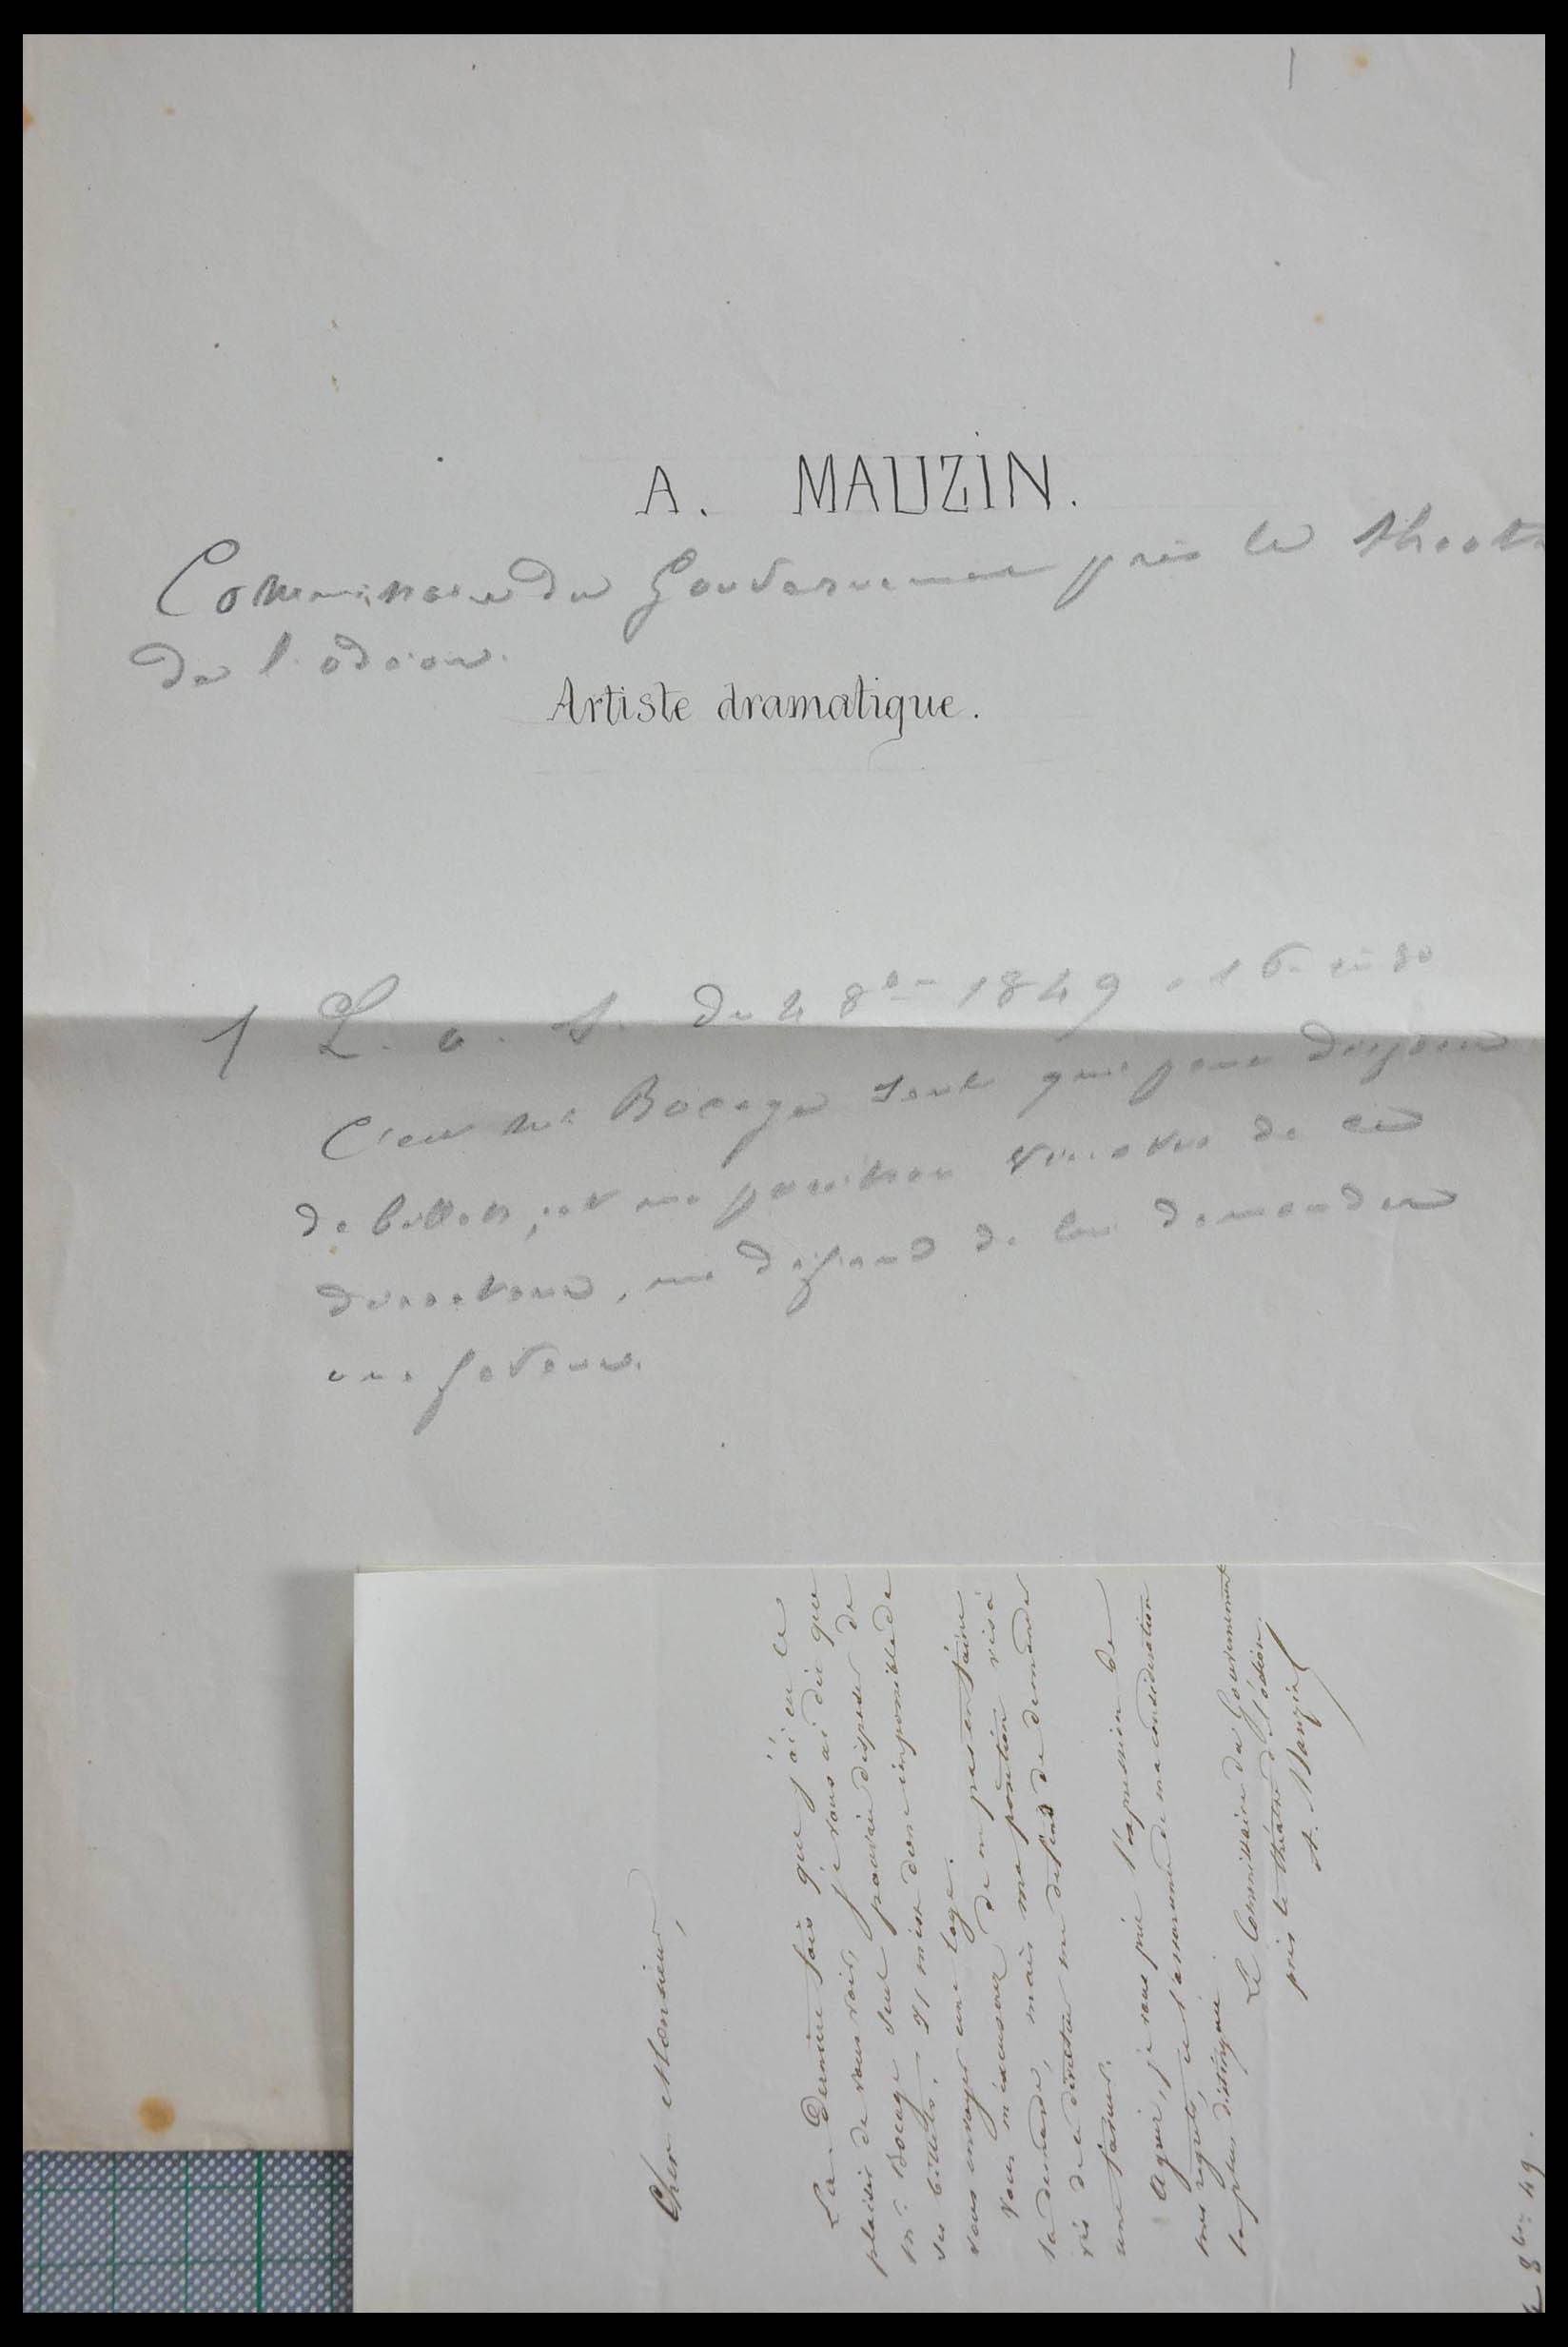 A. MAUZIN.
Commissaire du Gouvernement près le theatre
de l'odéon.
Artiste dramatique.
1 L. a. S. du 4 8bre 1849, 1 p. in 8o
C'est Mr Bocage seul qui peut disposer
de billets, et ma position vis-à-vis de ce
directeur, me défend de lui demander
une faveur.
Cher Monsieur,
La dernière fois que j'ai eu le
plaisir de vous voir, je vous ai dit que
Mr. Bocage seul pouvait disposer de
ses billets. Il m'est donc impossible de
vous envoyer une loge.
Vous m'excuserez de ne pas en faire
la demande, mais ma position vis à
vis de ce directeur me défend de demander
une faveur.
Agréez, je vous prie l'expression de
mes regrets, et l'assurance de ma considération
la plus distinguée.
Le Commissaire du Gouvernement
près le théâtre de l'odéon.
A. Mauzin
4 8bre 49.